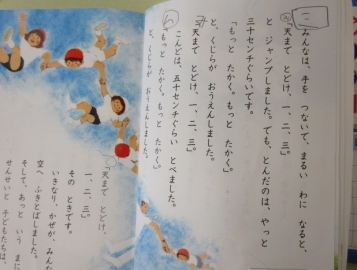 みんなは、手を つないで、まるい わに なると、
「天まで とどけ、一、二、三」
と ジャンプしました。でも、とんだのは、やっと
三十センチぐらいです。
「もっと たかく。もっと たかく。」
と、くじらが おうえんしました。
「天まで とどけ、一、二、三。」
こんどは、五十センチぐらい とべました。
「もっと たかく。もっと たかく。」
と、くじらが おうえんしました。
「天まで とどけ、
一、二、三。」
その ときです。
いきなり、かぜが、みんな
空へ ふきとばしました。
そして、あっと いう まに
せんせいと 子どもたちは、